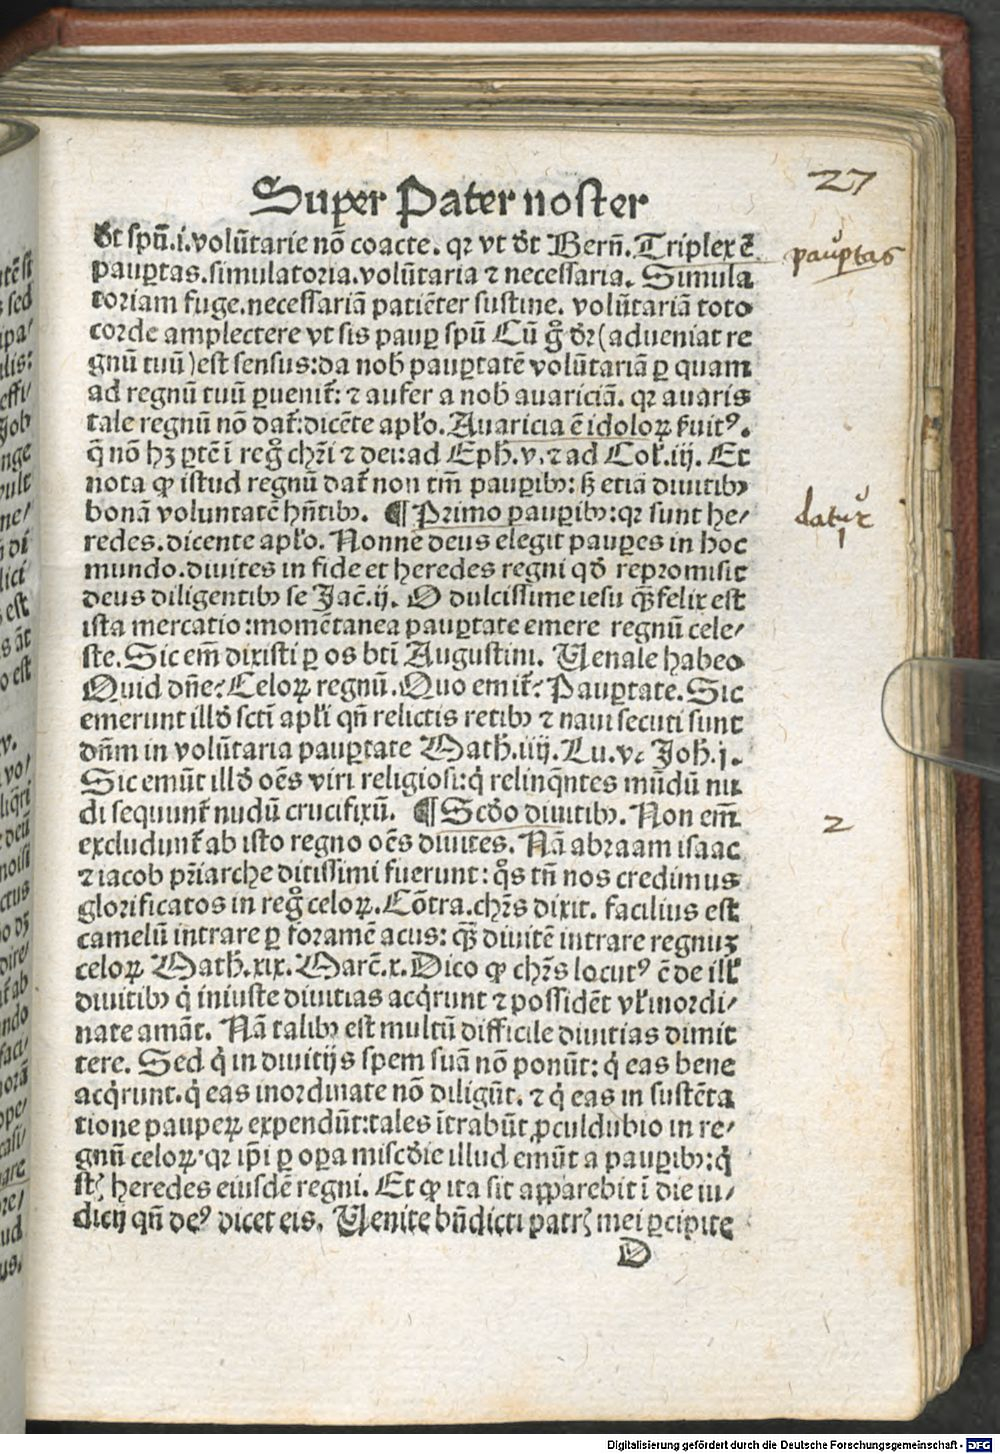 27
Super Pater noster
dt̄ spū.i.volūtarie nō coacte. qꝛ vt dt̄ Bern̄. Triplex ē
paup̲tas.simulatoria.volūtaria ⁊ necessaria. Simula
toriam fuge.necessariā patiēter sustine. volūtariā toto
corde amplectere vt sis paup̲ spū Cū g̊ dr̄(adueniat re
gnū tuū)est sensus:da nob̄ paup̲tatē volūtariā p̲ quam
ad regnū tuū p̲uenit᷑: ⁊ aufer a nob̄ auariciā. qꝛ auaris
tale regnū nō dat᷑:dicēte apl̄o. Auaricia ē idoloꝝ ẜuitꝰ.
q̄ nō hꝫ p̲tē ī reg̊ chr̄i ⁊ dei:ad Eph̄.v.⁊ ad Col̄.iij. Et
nota ꝙ istud regnū dat᷑ non tm̄ paup̲ibꝫ: ß etiā diuitibꝫ
bonā voluntatē hn̄tibꝫ. ¶ Primo paup̲ibꝫ:qꝛ sunt he/
redes.dicente apl̄o. Nonne deus elegit paup̲es in hoc
mundo.diuites in fide et heredes regni qd̄ repromisit
deus diligentibꝫ se Jac̄.ij. O dulcissime iesu q̄ꝫ felix est
ista mercatio:momētanea paup̲tate emere regnū cele/
ste. Sic em̄ dixisti p̲ os bt̄i Augustini. Uenale habeo
Quid dn̄e? Celoꝝ regnū. Quo emit᷑? Paup̲tate. Sic
emerunt illd̄ sct̄i apl̄i qn̄ relictis retibꝫ ⁊ naui secuti sunt
dn̄m in volūtaria paup̲tate Math̄.iiij. Lu. v. Joh̄.j.
Sic emūt illd̄ oēs viri religiosi:q̇ relinq̄ntes mūdū nu
di sequunt᷑ nudū crucifixū. ¶ Scd̄o diuitibꝫ. Non em̄
excludunt᷑ ab isto regno oēs diuites. Nā abraam isaac
⁊ iacob pr̄iarche ditissimi fuerunt: q̊s tn̄ nos credimus
glorificatos in reg̊ celoꝝ. Cōtra.chr̄s dixit. facilius est
camelū intrare p̲ foramē acus: q̄ꝫ diuitē intrare regnuꝫ
celoꝝ Math̄.xix. Marc̄.x. Dico ꝙ chr̄s locutꝰ ē de ill̄
diuitibꝫ q̇ iniuste diuitias acq̇runt ⁊ possidēt vl̄ inordi/
nate amāt. Nā talibꝫ est multū difficile diuitias dimit
tere. Sed q̇ in diuitijs spem suā nō ponūt: q̇ eas bene
acq̇runt.q̇ eas inordinate nō diligūt. ⁊ q̇ eas in sustēta
tione paupeꝝ expendūt:tales ītrabūt ꝓculdubio in re/
gnū celoꝝ.qꝛ ip̄i p̲ op̲a miscd̄ie illud emūt a paup̲ibꝫ:q̇
st̄ heredes eiusdē regni. Et ꝙ ita sit apparebit ī die iu/
dicij qn̄ deꝰ dicet eis. Uenite bn̄dicti patr̄ mei p̲cipite
D
paup̲tas
datur
1
2
Digitalisierung gefördert durch die Deutsche Forschungsgemeinschaft - DFG